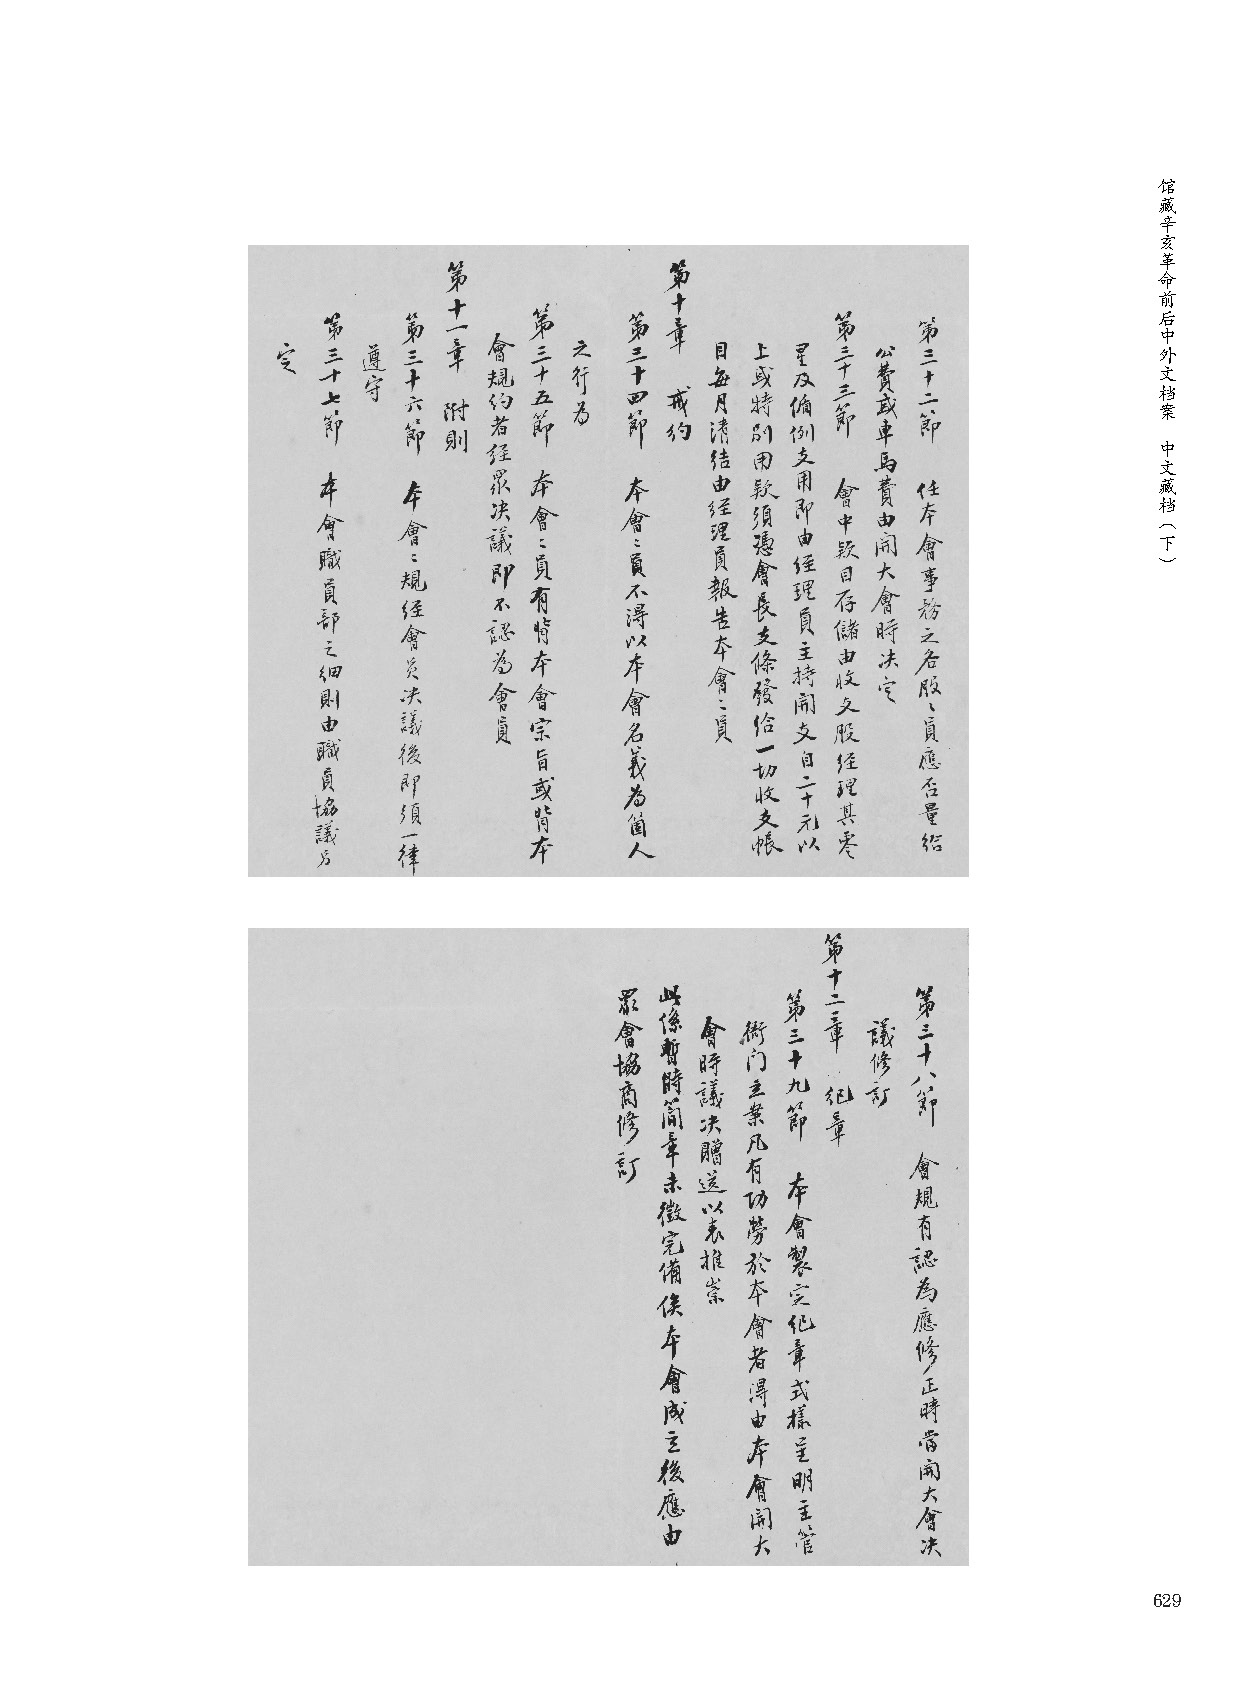 馆藏辛亥革命前后中外文档案 中文藏档（下）
第三十二節 任本會事務之各股〻員應否量給
公費或車馬費由開大會時决定
第三十三節 會中欵目存儲由收支股經理其零
星及循例支用即由經理員主持開支自二十元以
上或特別用欵須憑會長支條發給一切收支帳
目每月清結由經理員報告本會〻員
第十章 戒約
第三十四節 本會〻員不得以本會名義為箇人
之行為
第三十五節 本會〻員有背本會宗旨或背本
會規約者經眾决議即不認為會員
第十一章 附則
第三十六節 本會〻規經會員决議後即須一律
遵守
第三十七節 本會職員部之細則由職員協議另
定
第三十八節 會規有認為應修正時當開大會决
議修訂
第十二章 紀章
第三十九節 本會製定紀章式樣呈明主管
衙门立案凡有功勞於本會者得由本會開大
會時議决贈送以表推崇
此係暫時簡章未徵完備俟本會成立後應由
眾會協商修訂
629